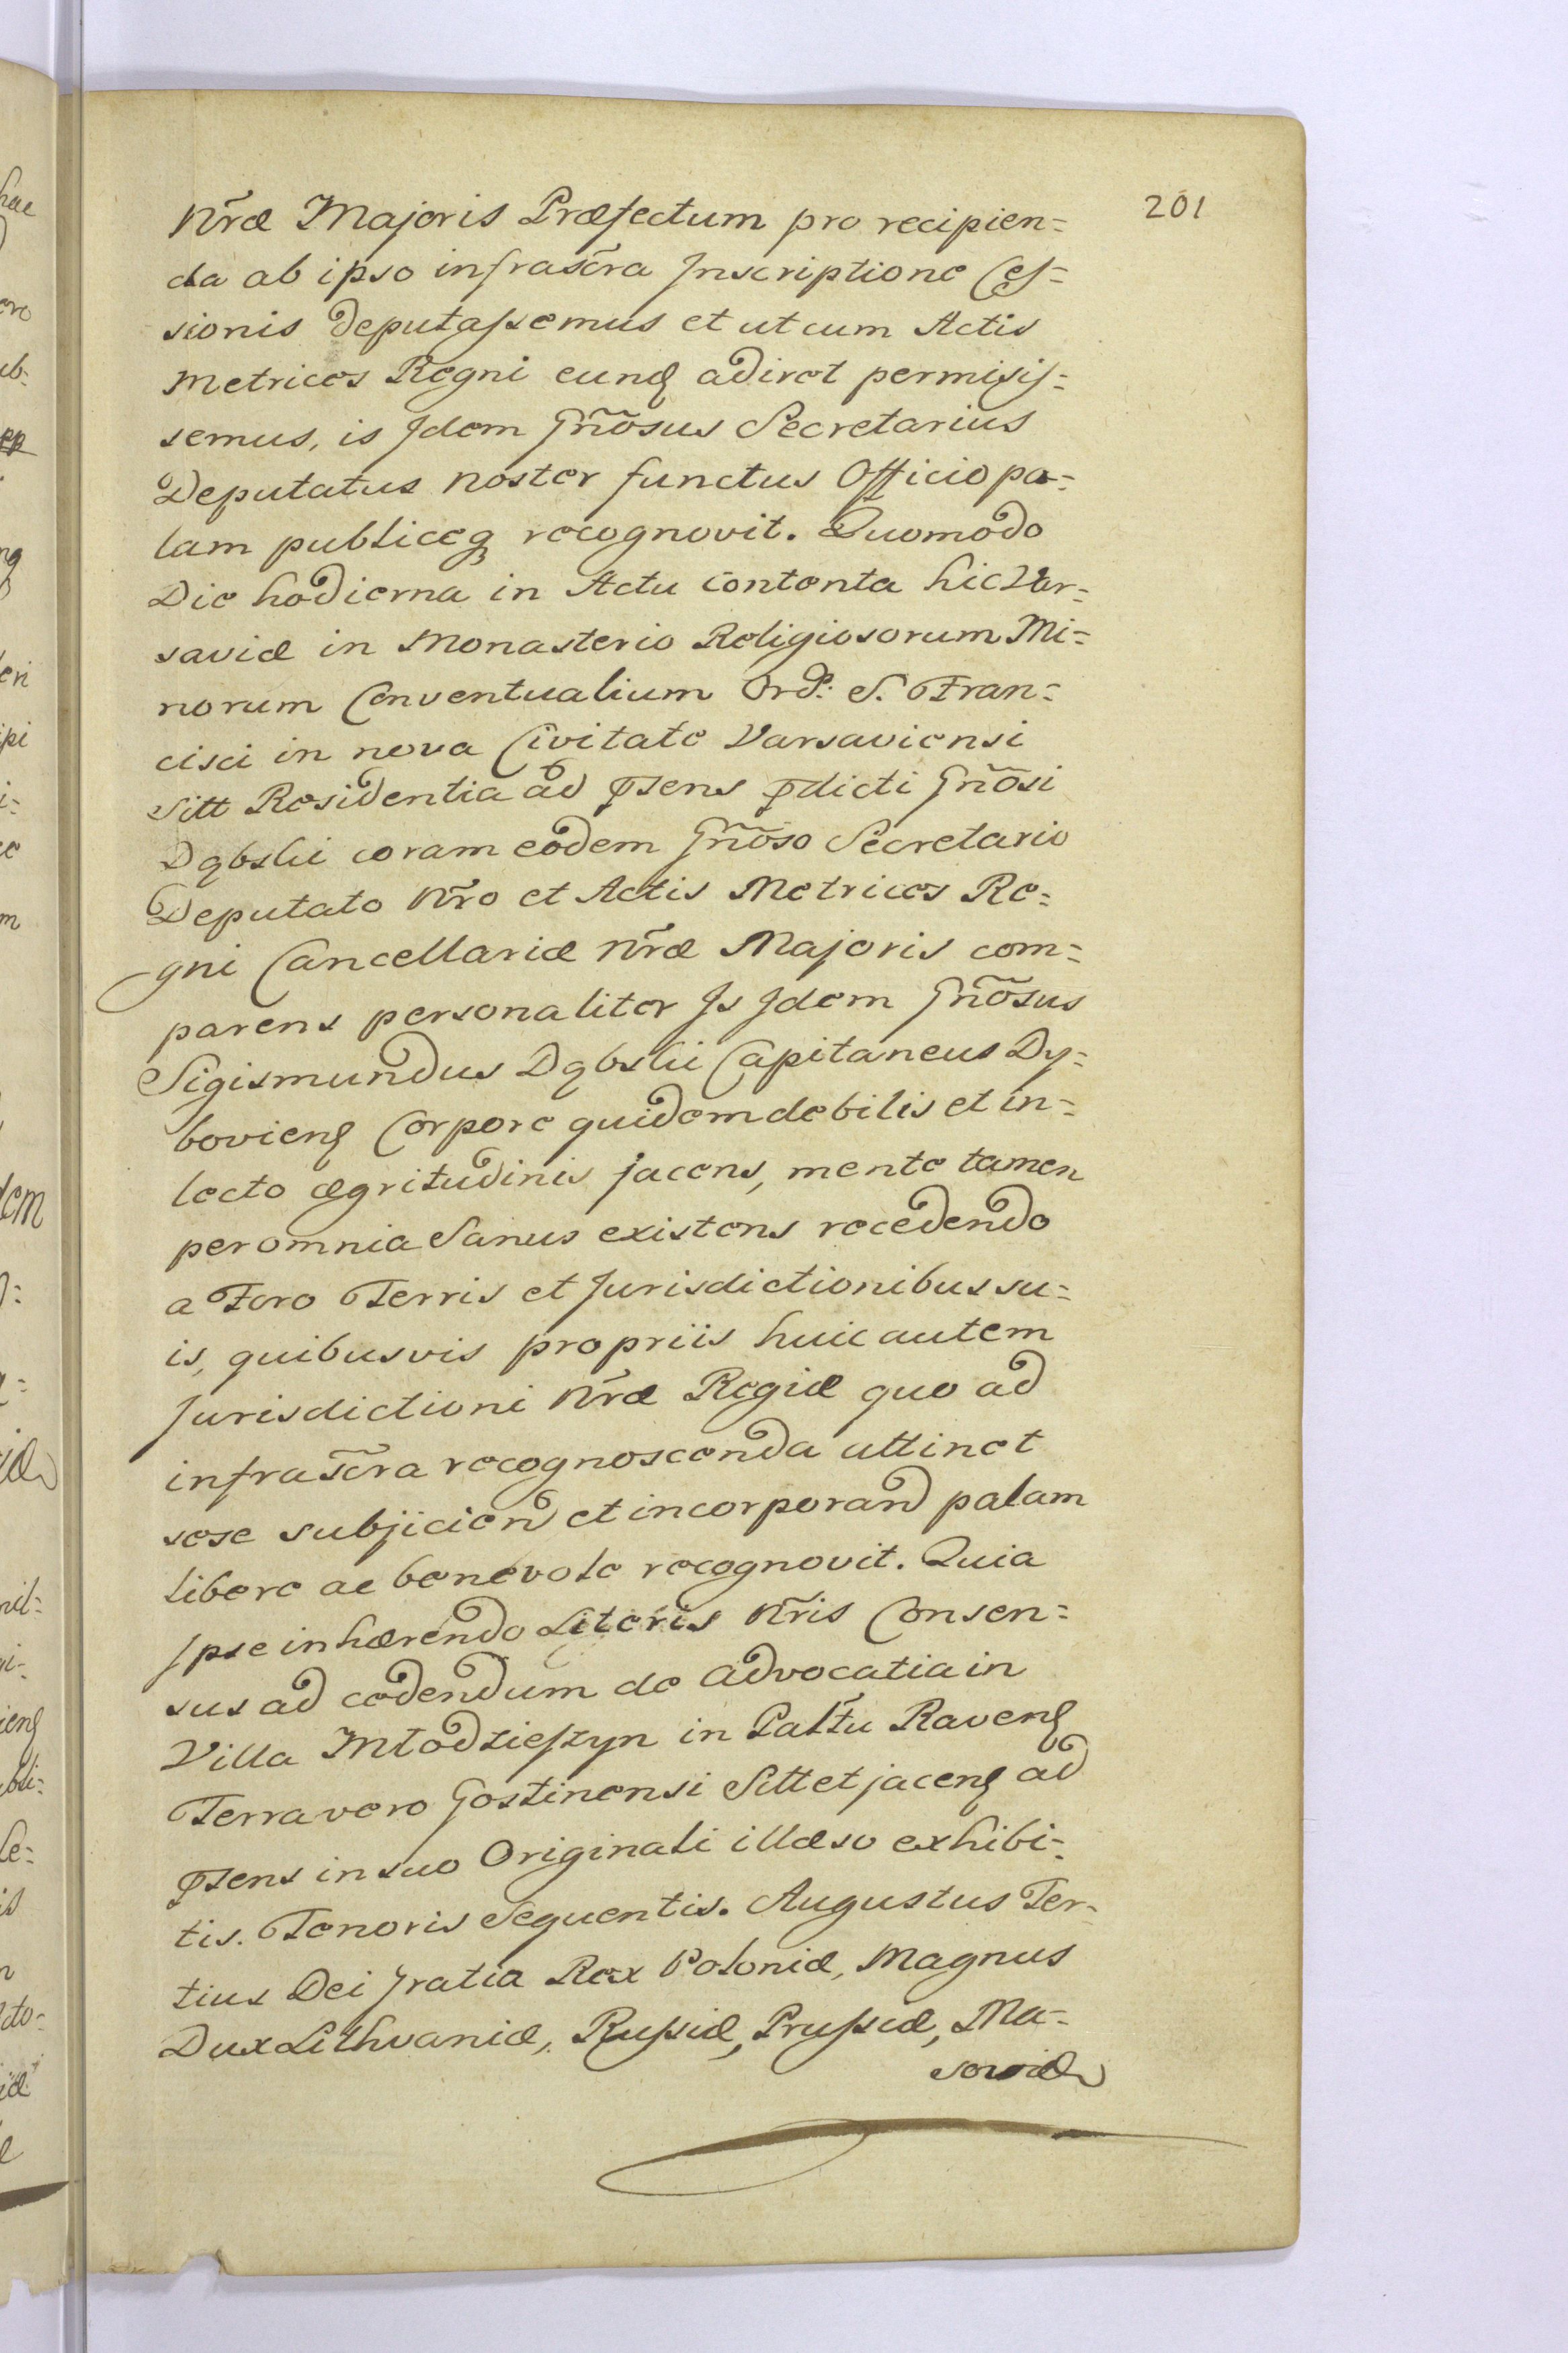 201
Nr̃æ Majoris Præfectum pro recipien=
da ab ipso infrasc̃ra Inscriptione Ces=
sionis deputassemus et ut cum Actis
Metrices Regni eunḍ adiret permisis=
semus, is Idem Gñõsus Secretarius
Deputatus noster functus Officio pa=
lam publiceq̨ recognovit. Quomodo
Die hodierna in Actu contenta hic Var=
saviæ in Monasterio Religiosorum Mi=
norum Conventualium Ord: S. Fran=
cisci in nova Civitate Varsaviensi
Sitt Residentia ad p̄sens p̄dicti Gñõsi
Dąbski coram eodem Gñõso Secretario
Deputato Nr̃o et Actis Metrices Re=
gni Cancellariæ Nr̃æ Majoris com=
parens personaliter Is Idem Gñõsus
Sigismundus Dąbski Capitaneus Dy=
bovienß Corpore quidem debilis et in=
lecto ægritudinis jacens, mente tamen
per omnia Sanus existens recedendo
a Foro Terris et Jurisdictionibus su=
is, quibusvis propriis huic autem
Jurisdictioni Nr̃æ Regiæ quo ad
infrasc̃ra recognoscenda attinet
sese subjicien̄d et incorporand palam
libere ac benevole recognovit. Quia
Ipse inhærendo Literis Nr̃is Consen=
sus ad cedendum de Advocatia in
Villa Młodzieszyn in Paltũ Ravenß
Terra vero Gostinensi Sitt et jacenß ad
p̄sens in suo Originali illæso exhibi=
tis. Tenoris Sequentis. Augustus Ter=
tius Dei Gratia Rex Poloniæ, Magnus
Dux Lithvaniæ, Russiæ, Prussiæ, Ma=
soviæ